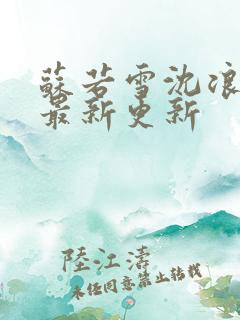 蘇若雪沈浪
最新更新
陸江濤
未经同意禁止转载